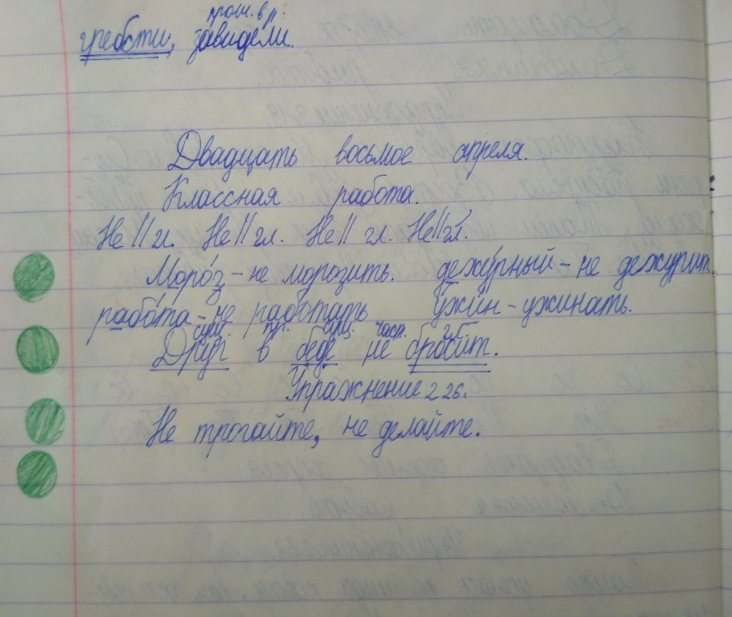 прош. вр.
гребсти, завидели.
Двадцать восьмое апреля.
Классная работа.
Не || гл. Не || гл. Не || гл. Не || гл.
Моро́з - не морозить. дежу́рный - не дежурит.
рабо́та - не работать у́жин - ужинать.
сущ. пр. сущ. част. гл.
Друг в беде не бросит.
Упражнение 226.
Не трогайте, не делайте.